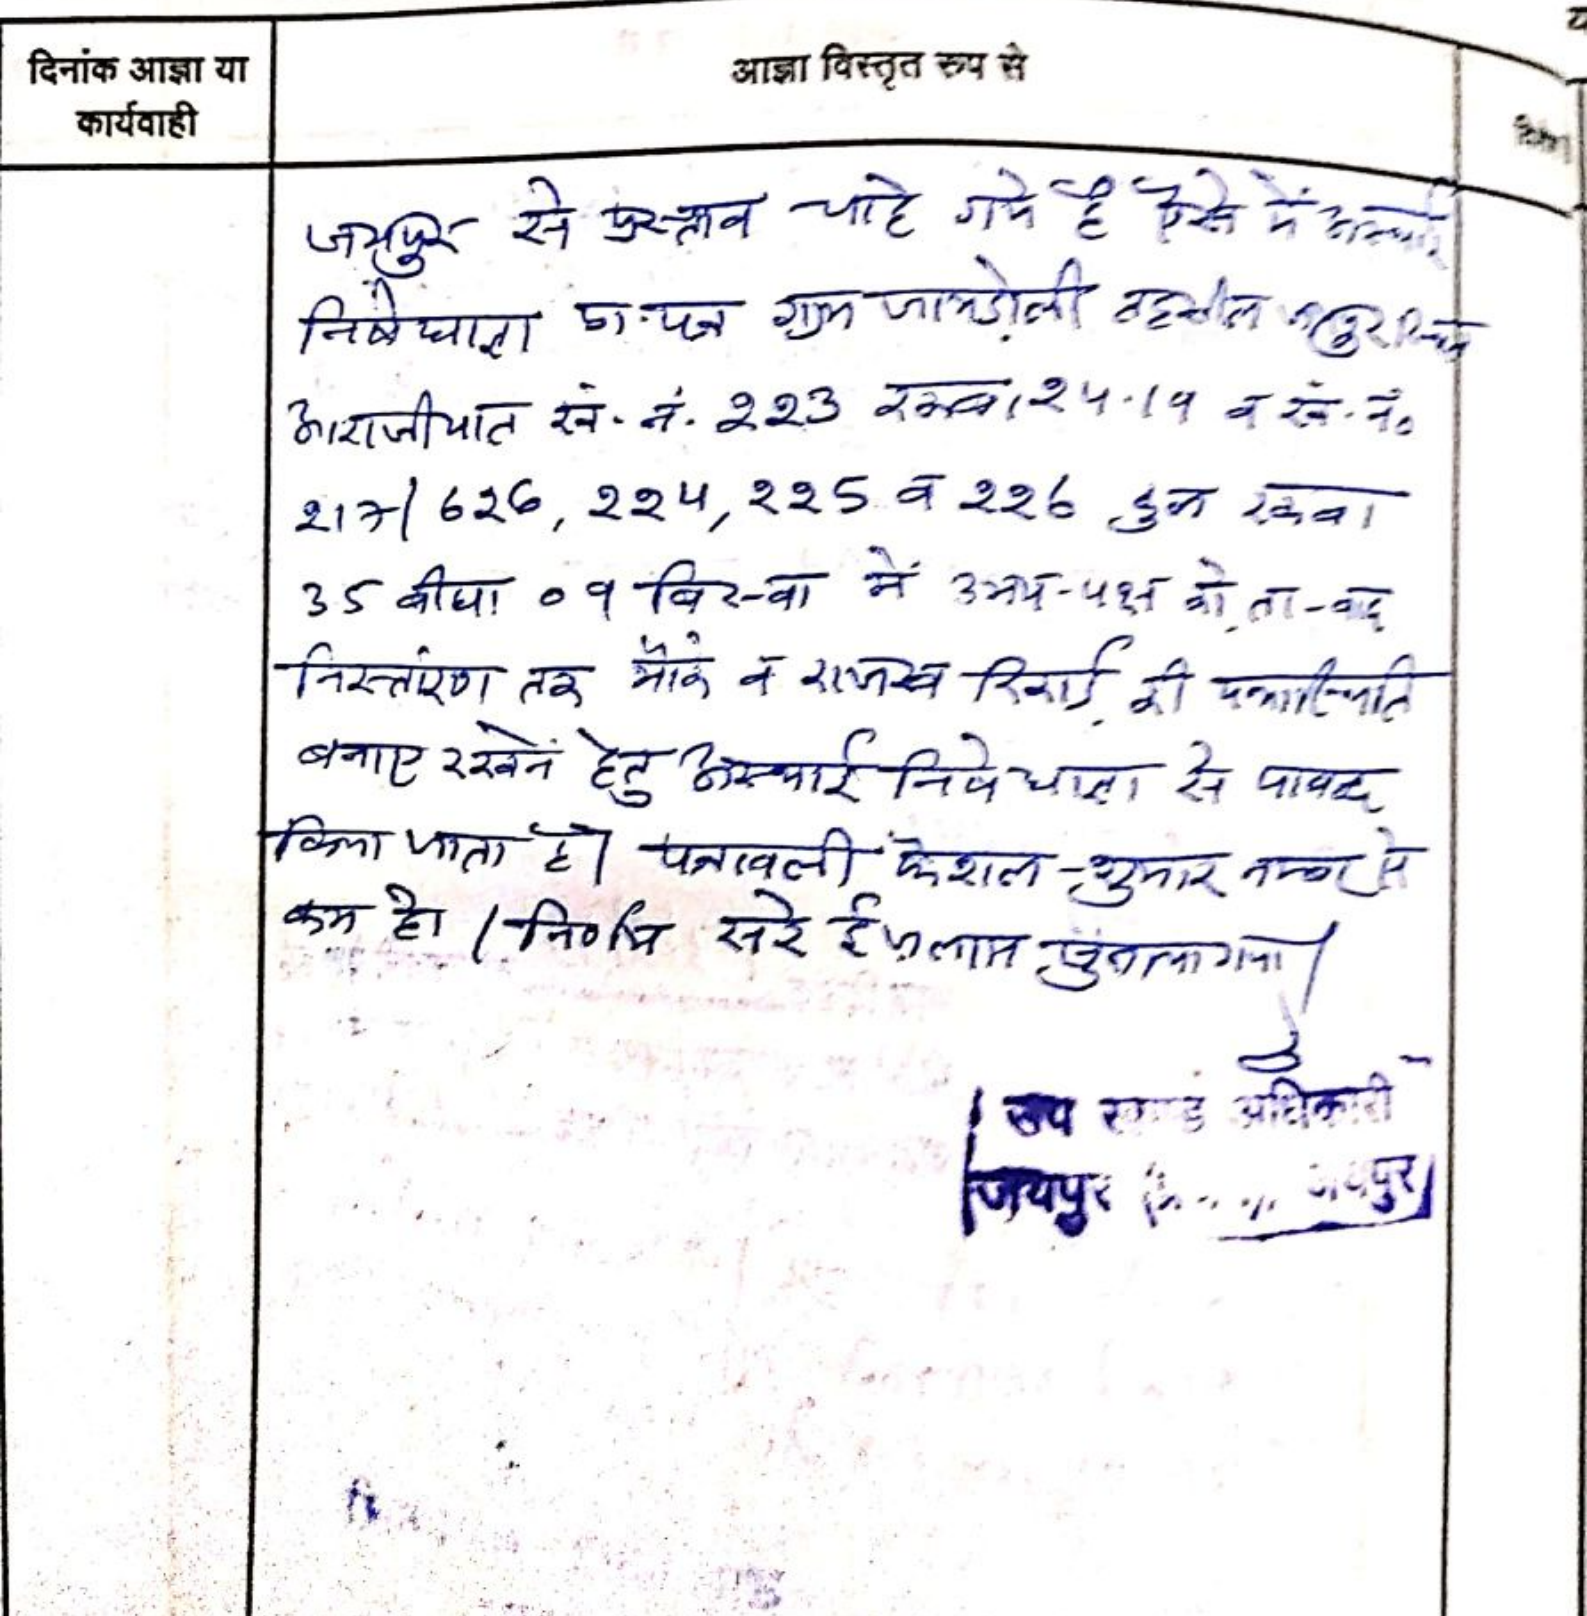 दिनांक आज्ञा या
कार्यवाही
आज्ञा विस्तृत रूप से
जयपुर से प्रस्ताव चाहे गये है ऐसे में अस्थाई
निषेधाज्ञा प्रा. पत्र ग्राम जामडोली तहसील जयपुर स्थित
आराजीयात ख. नं. 223 रकबा 24.19 व ख. नं.
217/626, 224, 225 व 226 कुल रकबा
35 बीघा 09 बिस्वा में उभय-पक्ष को ता-वाद
निस्तारण तक मौके व राजस्व रिकार्ड की यथास्थिति
बनाए रखने हेतु अस्थाई निषेधाज्ञा से पाबन्द
किया जाता है। पत्रावली फैशल-शुमार नम्बर से
कम हो। निर्णय सरे ईजलास सुनाया गया।
उप खण्ड अधिकारी
जयपुर जयपुर